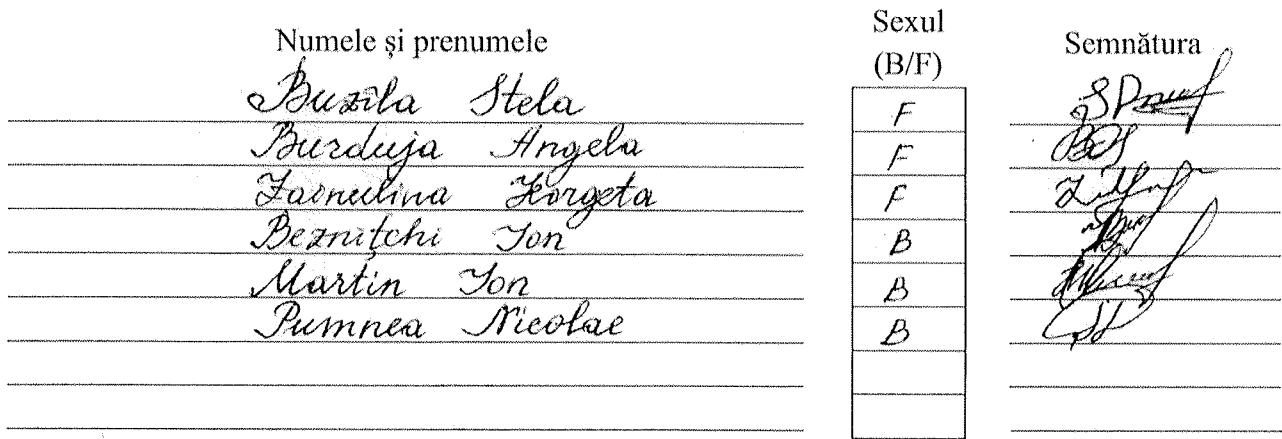 Numele și prenumele Sexul (B/F) Semnătura
Buzîla Stela F
Burduja Angela F
Georgeta F
Beznițchi Ion B
Martin Ion B
Pumnea Nicolae B